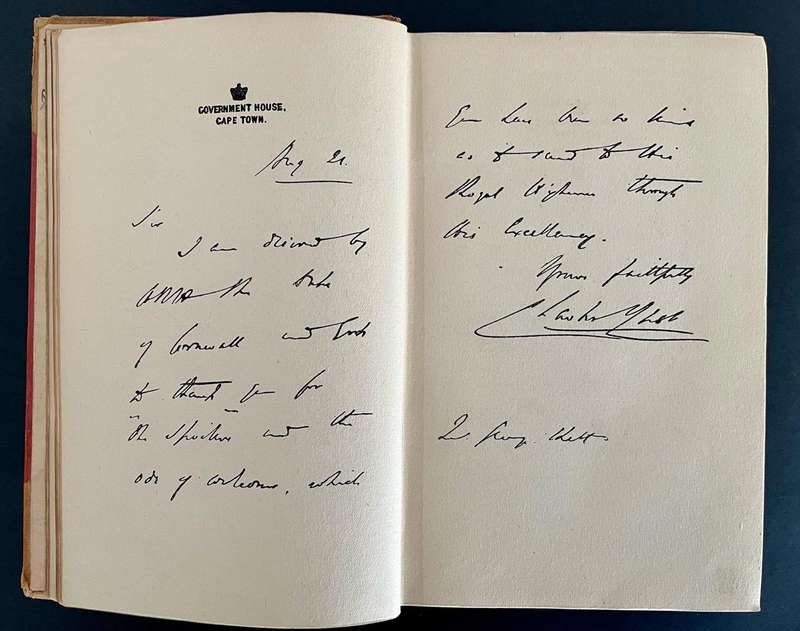 GOVERNMENT HOUSE,
CAPE TOWN.
Aug 21.
Sir
I am desired by
the Duke
of Cornwall and York
to thank you for
"the Spoilers" and the
ode of welcome, which
You have been so kind
as to send to His
Royal Highness through
His Excellency.
Yours faithfully